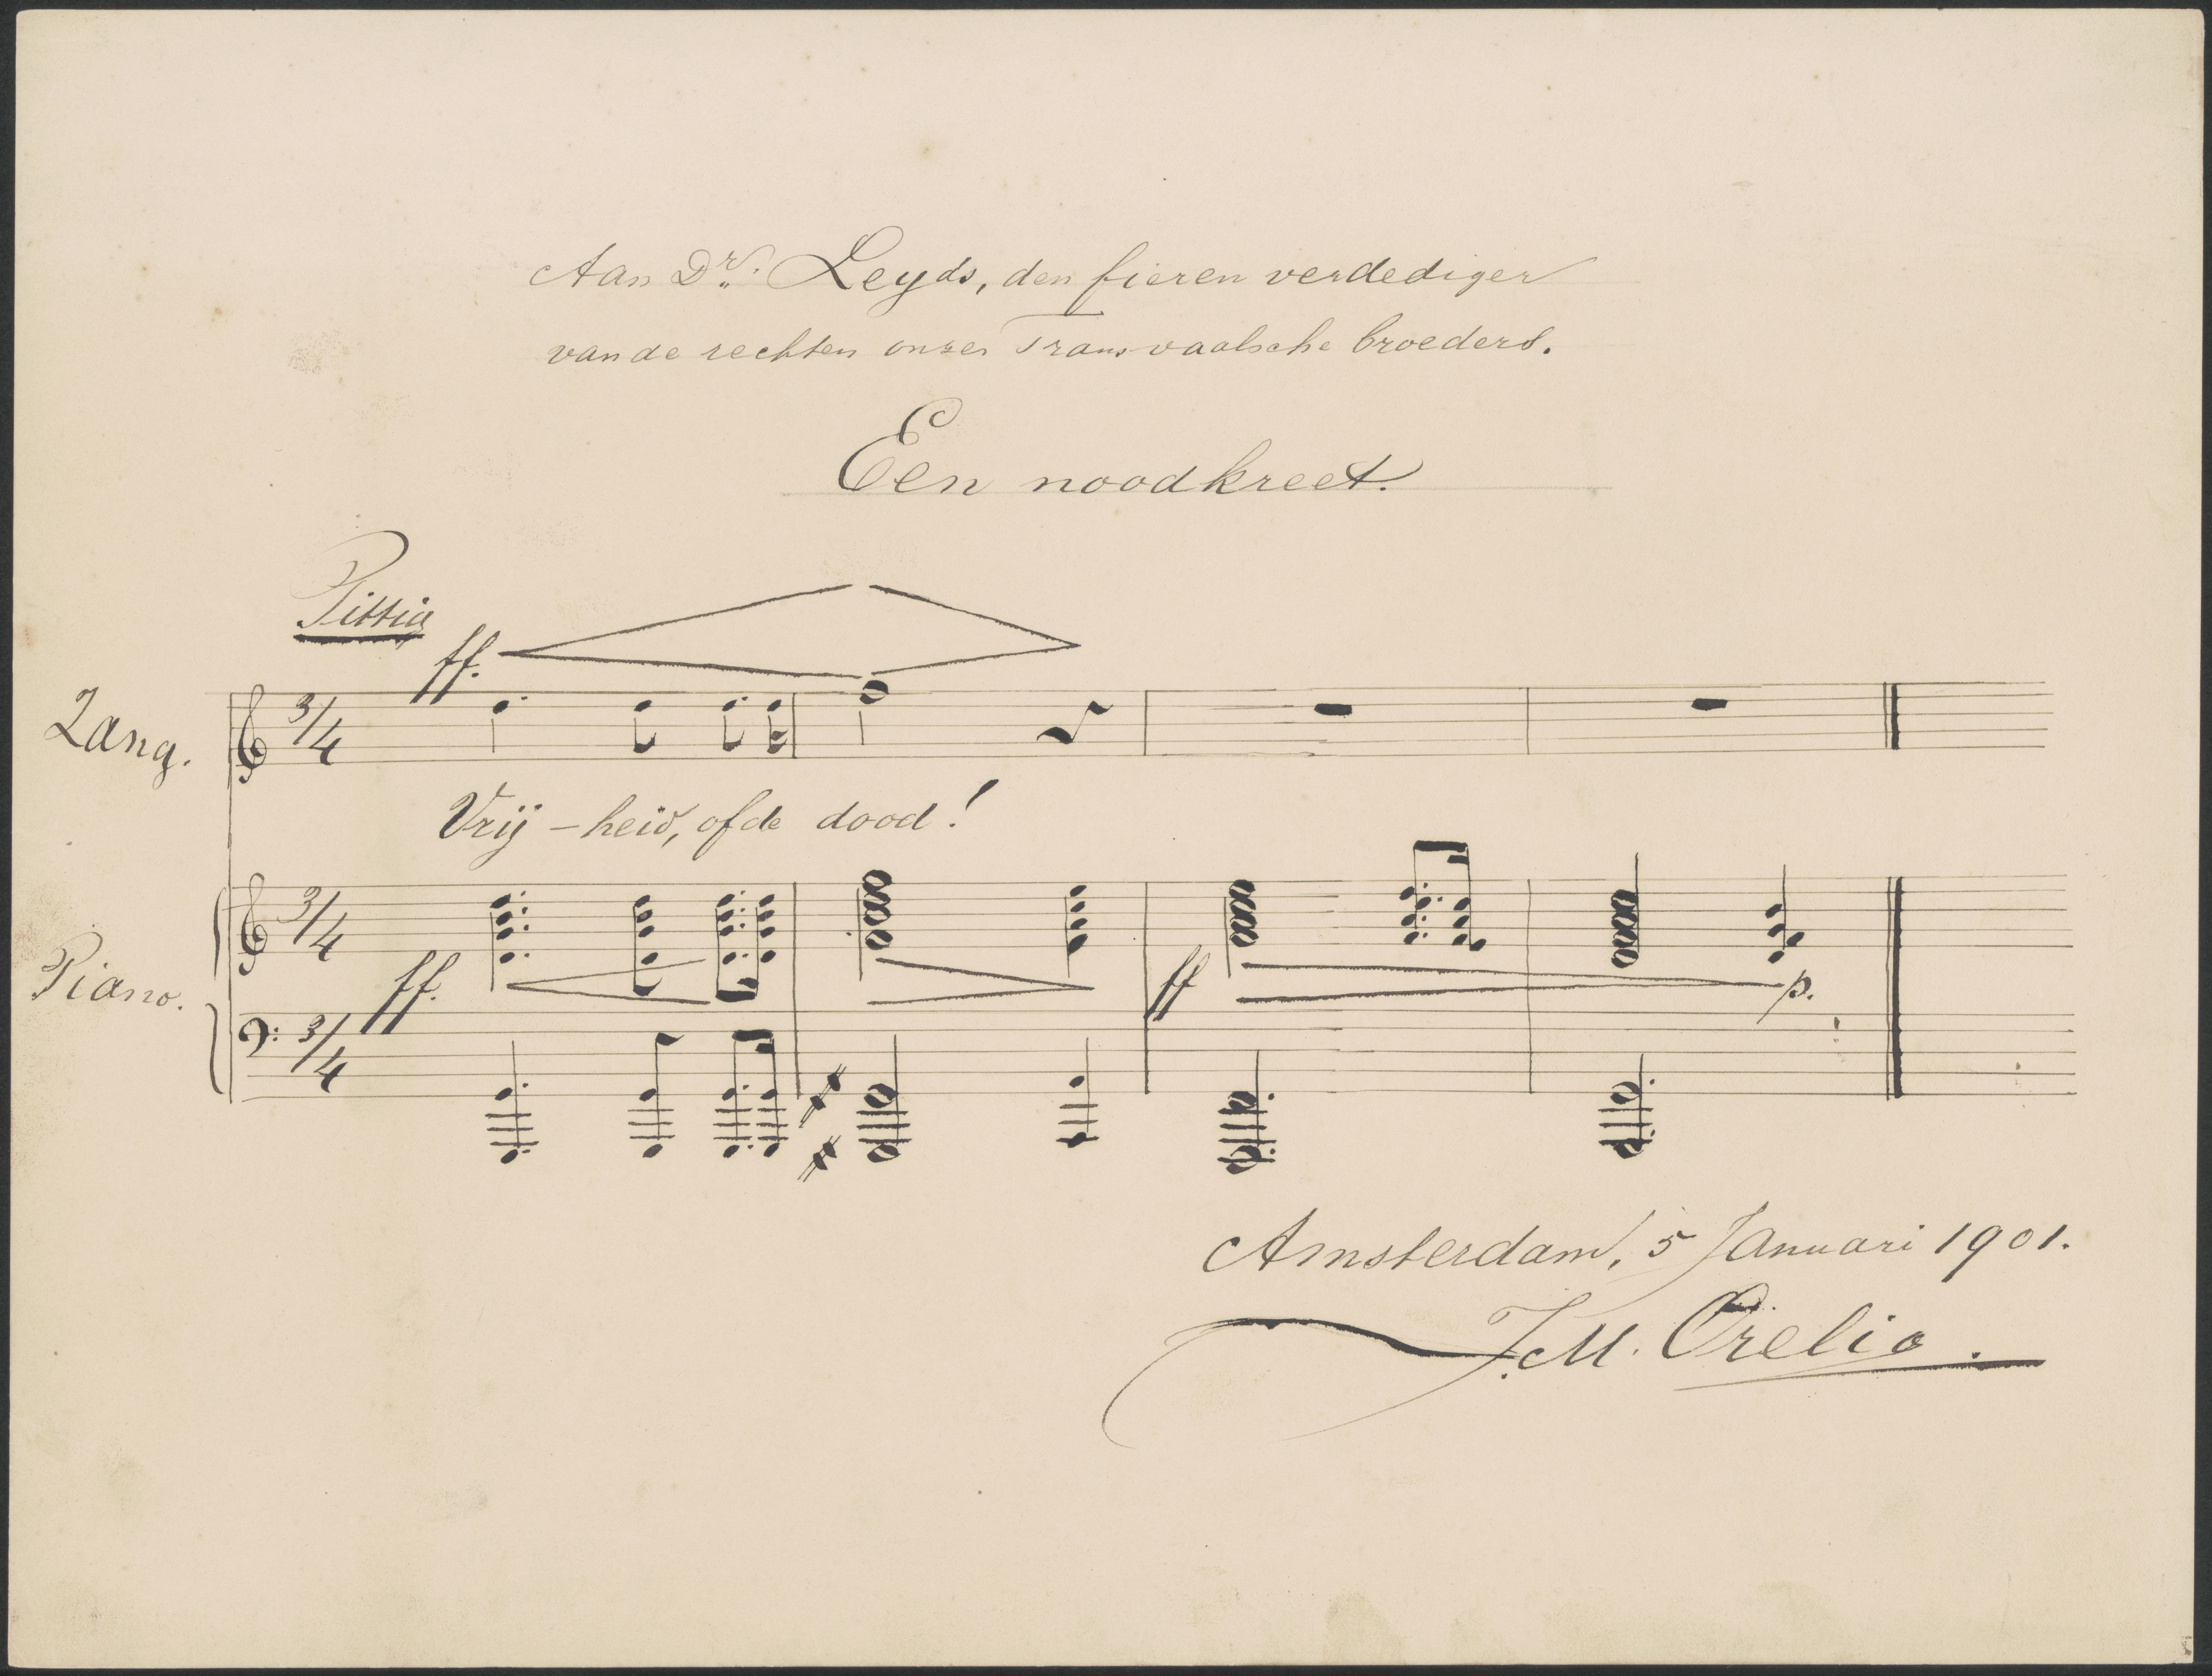 Aan Dr. Leyds, den fieren verdediger
van de rechten onzer Transvaalsche broeders.
Een noodkreet.
Pittig
ff.
Zang.
3/4
Vrij - heid, of de dood!
Piano.
3/4
ff.
ff
p.
3/4
Amsterdam, 5 Januari 1901.
J.M. Orelio.